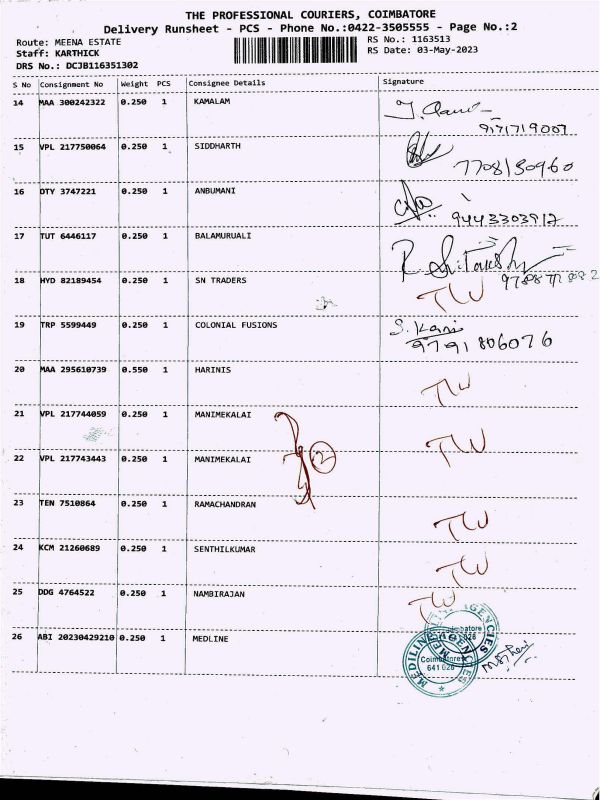 THE PROFESSIONAL COURIERS, COIMBATORE
Delivery Runsheet - PCS - Phone No.:0422-3505555 - Page No.:2
Route: MEENA ESTATE
Staff: KARTHICK
DRS No.: DCJB116351302
RS No.: 1163513
RS Date: 03-May-2023
S No Consignment No Weight PCS Consignee Details Signature
14 MAA 300242322 0.250 1 KAMALAM
9171719007
15 VPL 217750064 0.250 1 SIDDHARTH
7708130960
16 DTY 3747221 0.250 1 ANBUMANI
9443303917
17 TUT 6446117 0.250 1 BALAMURUALI
18 HYD 82189454 0.250 1 SN TRADERS TW
19 TRP 5599449 0.250 1 COLONIAL FUSIONS S. Kani
9791806076
20 MAA 295610739 0.550 1 HARINIS TW
21 VPL 217744059 0.250 1 MANIMEKALAI TW
2
22 VPL 217743443 0.250 1 MANIMEKALAI
23 TEN 7510864 0.250 1 RAMACHANDRAN TW
24 KCM 21260689 0.250 1 SENTHILKUMAR TW
25 DDG 4764522 0.250 1 NAMBIRAJAN TW
26 ABI 20230429210 0.250 1 MEDLINE
MEDILINE AGENCIES
Coimbatore
641 026